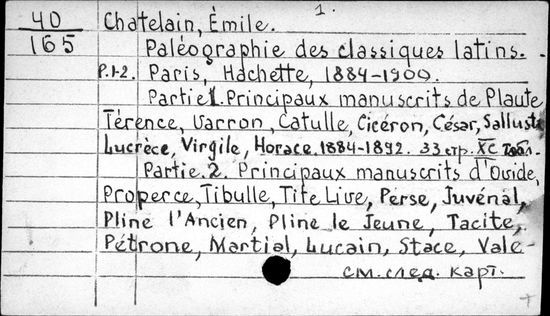 1.
40 Chatelain, Émile.
165 Paléographie des classiques latins.
P.1-2. Paris, Hachette, 1884-1900.
Partie 1. Principaux manuscrits de Plaute
Térence, Varron, Catulle, Cicéron, César, Salluste
Lucrèce, Virgile, Horace. 1884-1892. 33 стр. XC табл.
Partie 2. Principaux manuscrits d'Ovide,
Properce, Tibulle, Tite Live, Perse, Juvénal,
Pline l'Ancien, Pline le Jeune, Tacite,
Pétrone, Martial, Lucain, Stace, Vale-
см. след. карт.